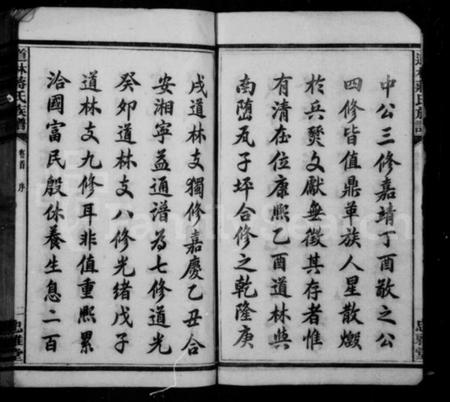 中公三修嘉靖丁酉敬之公
四修皆值鼎革族人星散燬
於兵燹文獻無徵其存者惟
有清在位康熙乙酉道林與
南塘瓦子坪合修之乾隆庚
戌道林支獨修嘉慶乙丑合
安湘寧益通譜為七修道光
癸卯道林支八修光緒戊子
道林支九修耳非值重熙累
洽國富民殷休養生息二百
道林蔣氏族譜
卷首 序
一
思雅堂
FamilySearch